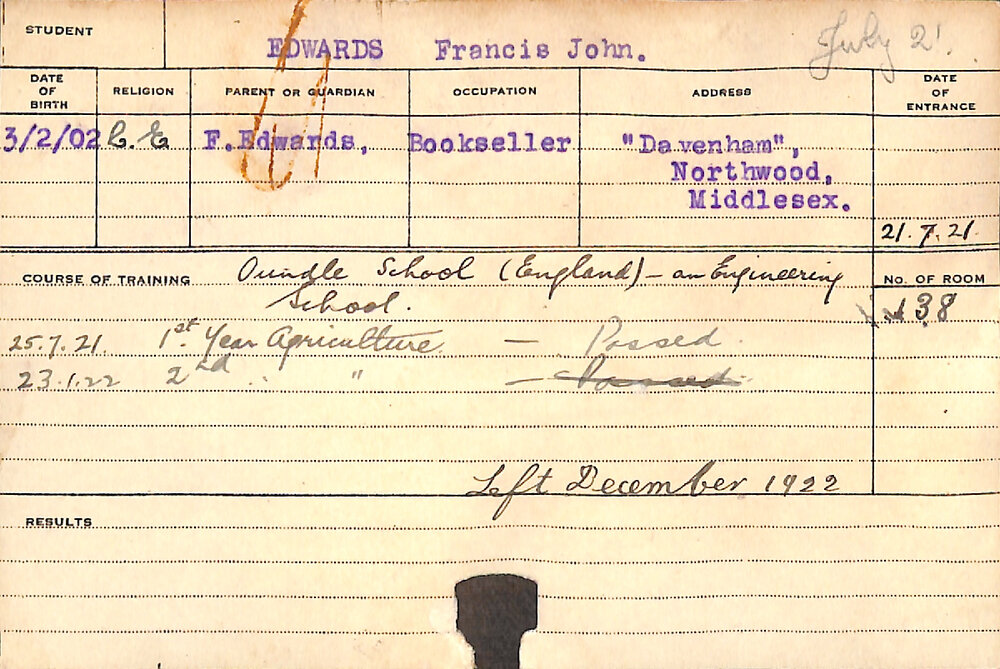 STUDENT
EDWARDS Francis John.
July 21.
DATE OF BIRTH
RELIGION
PARENT OR GUARDIAN
OCCUPATION
ADDRESS
DATE OF ENTRANCE
3/2/02 C.E F.Edwards, Bookseller "Davenham",
Northwood,
Middlesex.
21.7.21.
COURSE OF TRAINING Oundle School (England) – an Engineering
School.
No. OF ROOM
38
25.7.21. 1st. Year Agriculture. — Passed.
23.1.22 2nd " " — Passed.
Left December 1922
RESULTS